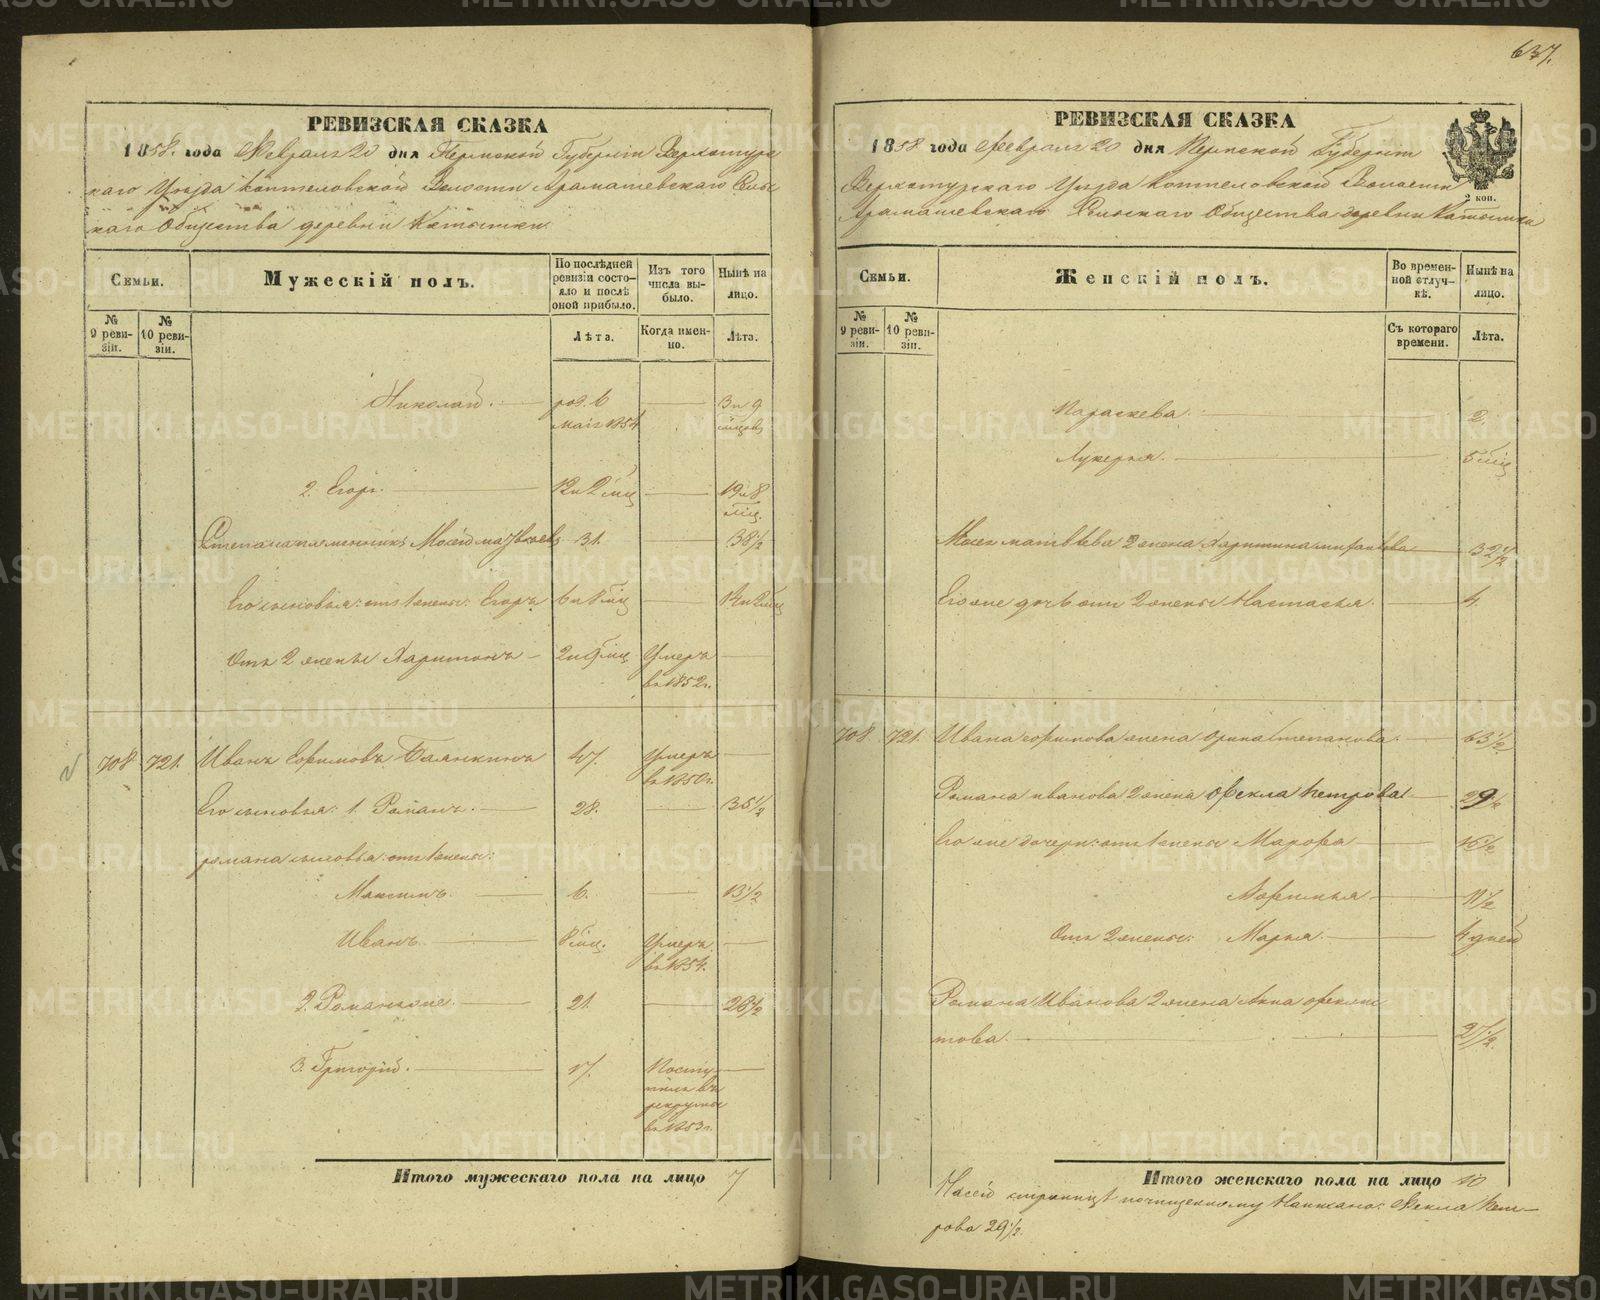 637.
РЕВИЗСКАЯ СКАЗКА
1858. года Февраля 20 дня Пермской Губернiи Верхотурс
каго Уѣзда Коптеловской Волости Арамашевскаго Сельс
каго Общества деревни Катышки.
Семьи.
Мужескiй полъ.
По послѣдней ревизiи состояло и послѣ оной прибыло.
Изъ того числа выбыло.
Нынѣ на лицо.
№ 9 ревизiи.
№ 10 ревизiи.
Лѣта.
Когда именно.
Лѣта.
Николай. род. 6 маiя 1854 3 и 9 мѣцов
2. Егоръ. 12 и 2 мц 19 и 8 мц.
Степана племянникъ Мосей Матвѣевъ 31. 38½
Его сыновья: отъ 1 жены: Егоръ 6 и 8 мц 14 и 2 мц
Отъ 2 жены Харитонъ 2 и 9 мц Умеръ въ 1852 г.
708 721. Иванъ Ефимовъ Балякинъ 47. Умеръ въ 1850 г.
Его сыновья: 1. Романъ. 28. 35½
Романа сыновья: отъ 1 жены:
Максимъ. 6. 13½
Иванъ. 8 мц. Умеръ въ 1854.
2. Романъ же. 21. 28½
3. Григорiй. 17. Поступилъ въ рекруты въ 1853 г.
Итого мужескаго пола на лицо 7
РЕВИЗСКАЯ СКАЗКА
1858. года Февраля 20 дня Пермской Губернiи
Верхотурскаго Уѣзда Коптеловской Волости
Арамашевскаго Сельскаго Общества деревни Катышки
2 коп.
Семьи.
Женскiй полъ.
Во временной отлучкѣ.
Нынѣ на лицо.
№ 9 ревизiи.
№ 10 ревизiи.
Съ котораго времени.
Лѣта.
Параскева. 2.
Лукерья. 5 мц
Мосея Матвѣева 2 жена Харитина 32½
Его же дочь отъ 2 жены Настасья. 4.
708. 721. Ивана Ефимова жена Орина Степанова. 63½
Романа Иванова 2 жена Ѳекла Петрова 29½
Его же дочери: отъ 1 жены Марфа 16½
Афимья. 11½
Отъ 2 жены: Марья. 4 дней
Романа Иванова 2 жена Анна
27½.
Итого женскаго пола на лицо 10
На сей страницѣ почищенному написано: Ѳекла Пет-
рова 29½.
METRIKI.GASO-URAL.RU